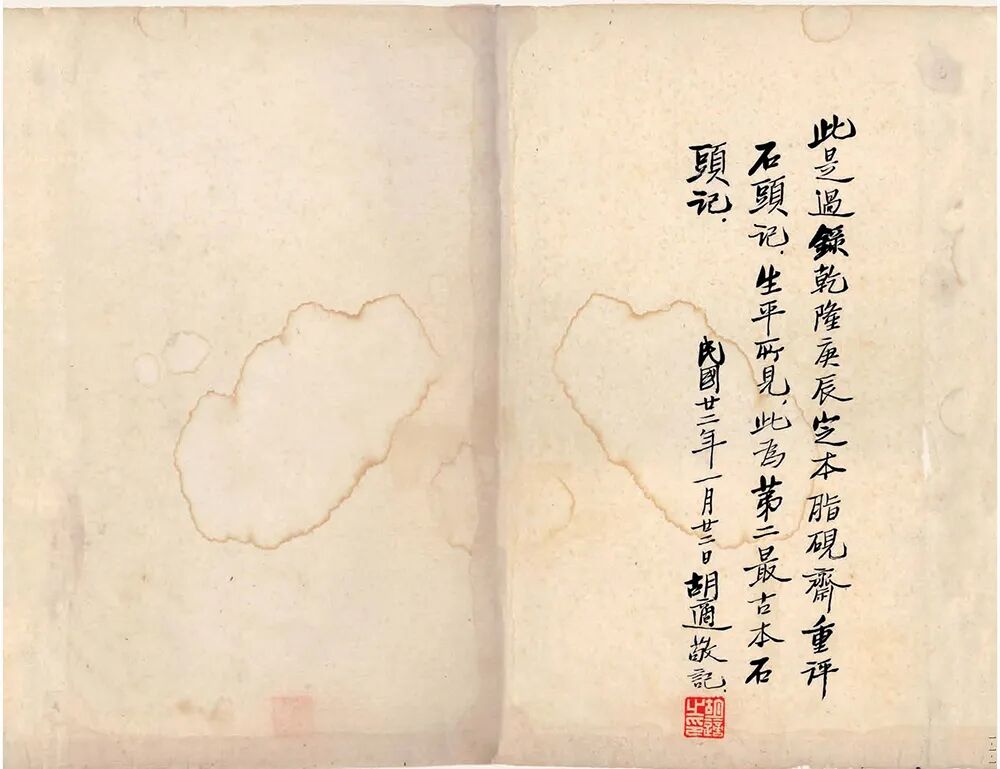 此是過錄乾隆庚辰定本脂硯齋重評
石頭記．生平所見，此為第二最古本石
頭記．
民國廿二年一月廿二日胡適敬記．
胡適之印